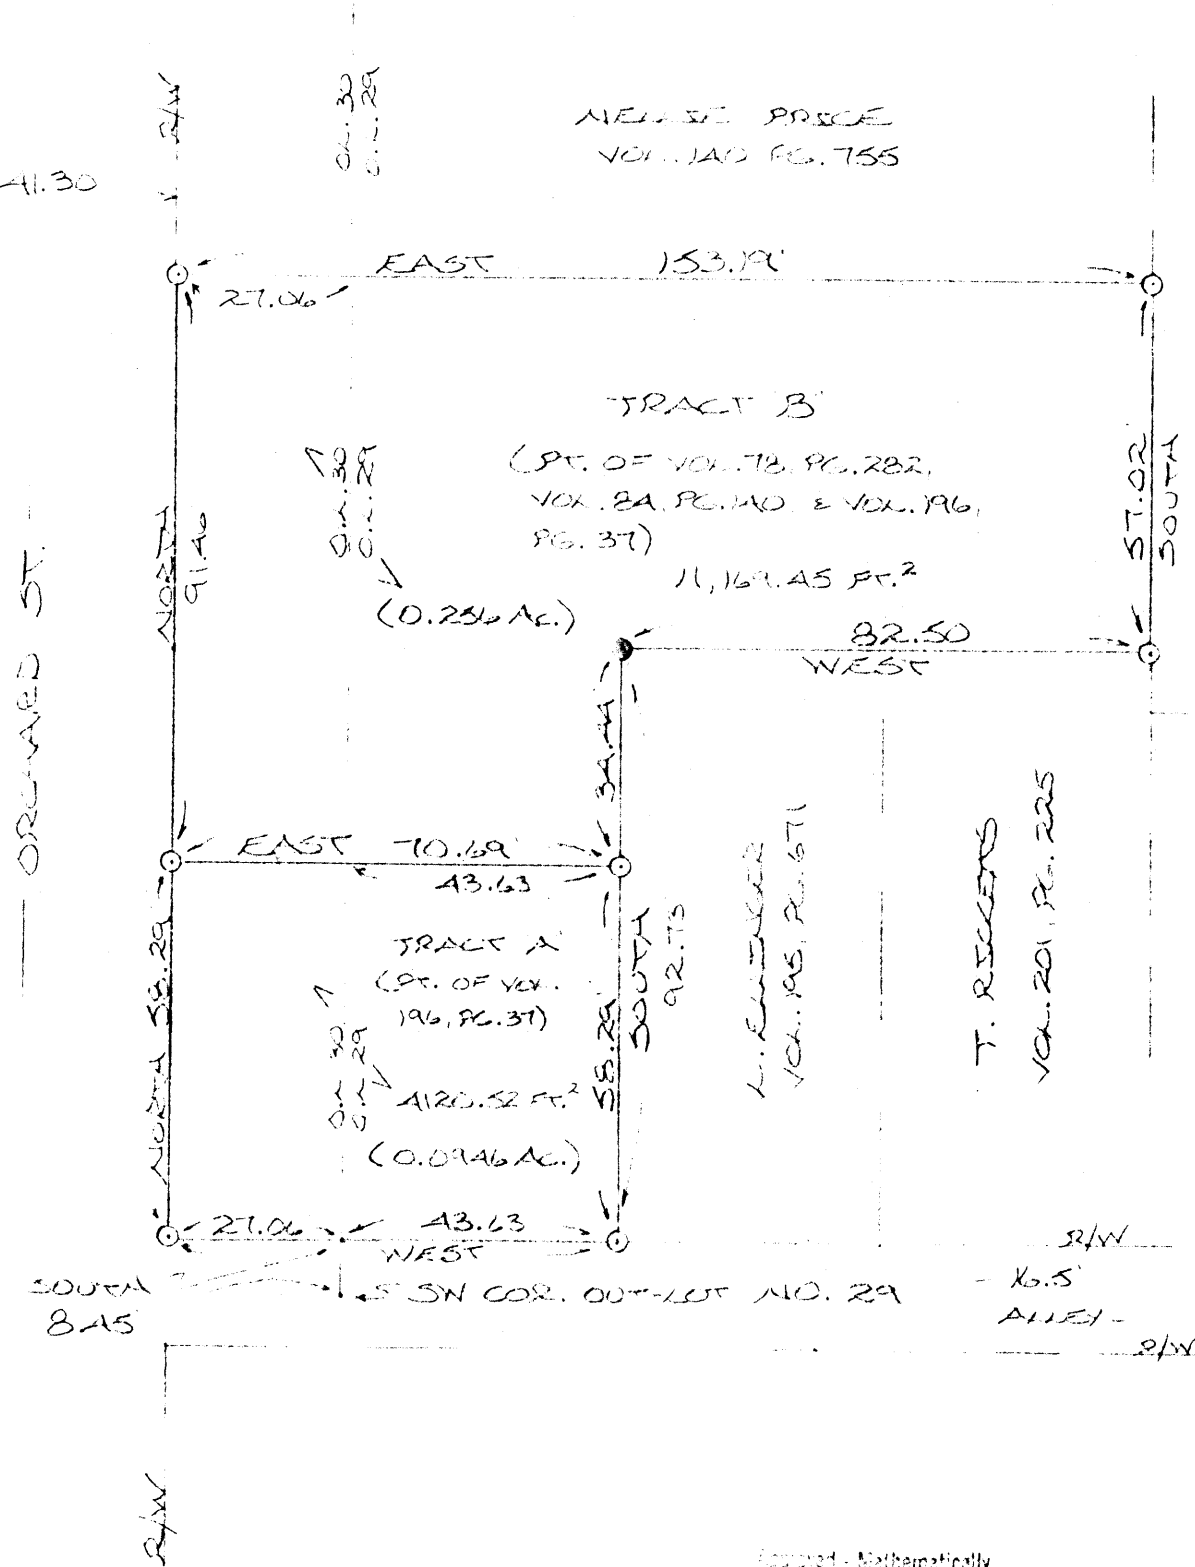 R/W
O.L. 30
O.L. 29
PRICE
VOL. 140 PG. 755
41.30
EAST 153.19'
27.06
TRACT 'B'
(PT. OF VOL. 78, PG. 282,
VOL. 84, PG. 140 & VOL. 196,
PG. 37)
11,169.45 FT.²
(0.256 AC.)
O.L. 30
O.L. 29
NORTH
91.46
57.02'
SOUTH
82.50
WEST
ORCHARD ST.
34.44
EAST 70.69'
43.63
TRACT 'A'
(PT. OF VOL.
196, PG. 37)
O.L. 30
O.L. 29
4120.52 FT.²
(0.0946 AC.)
NORTH 58.29'
58.29'
SOUTH
92.73
L. ELLINGER
VOL. 195, PG. 671
T. RICKETS
VOL. 201, PG. 225
27.06
43.63
WEST
R/W
SOUTH
8.45'
SW COR. OUT-LOT NO. 29
16.5'
ALLEY
R/W
R/W
Approved - Mathematically